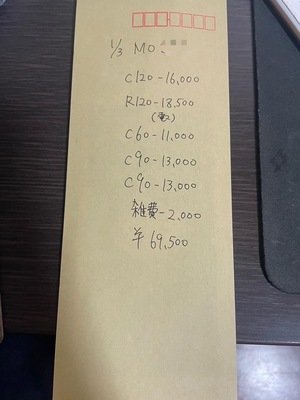 1/3 MO.
C120-16,000
R120-18,500
C60-11,000
C90-13,000
C90-13,000
雑費-2,000
¥69,500